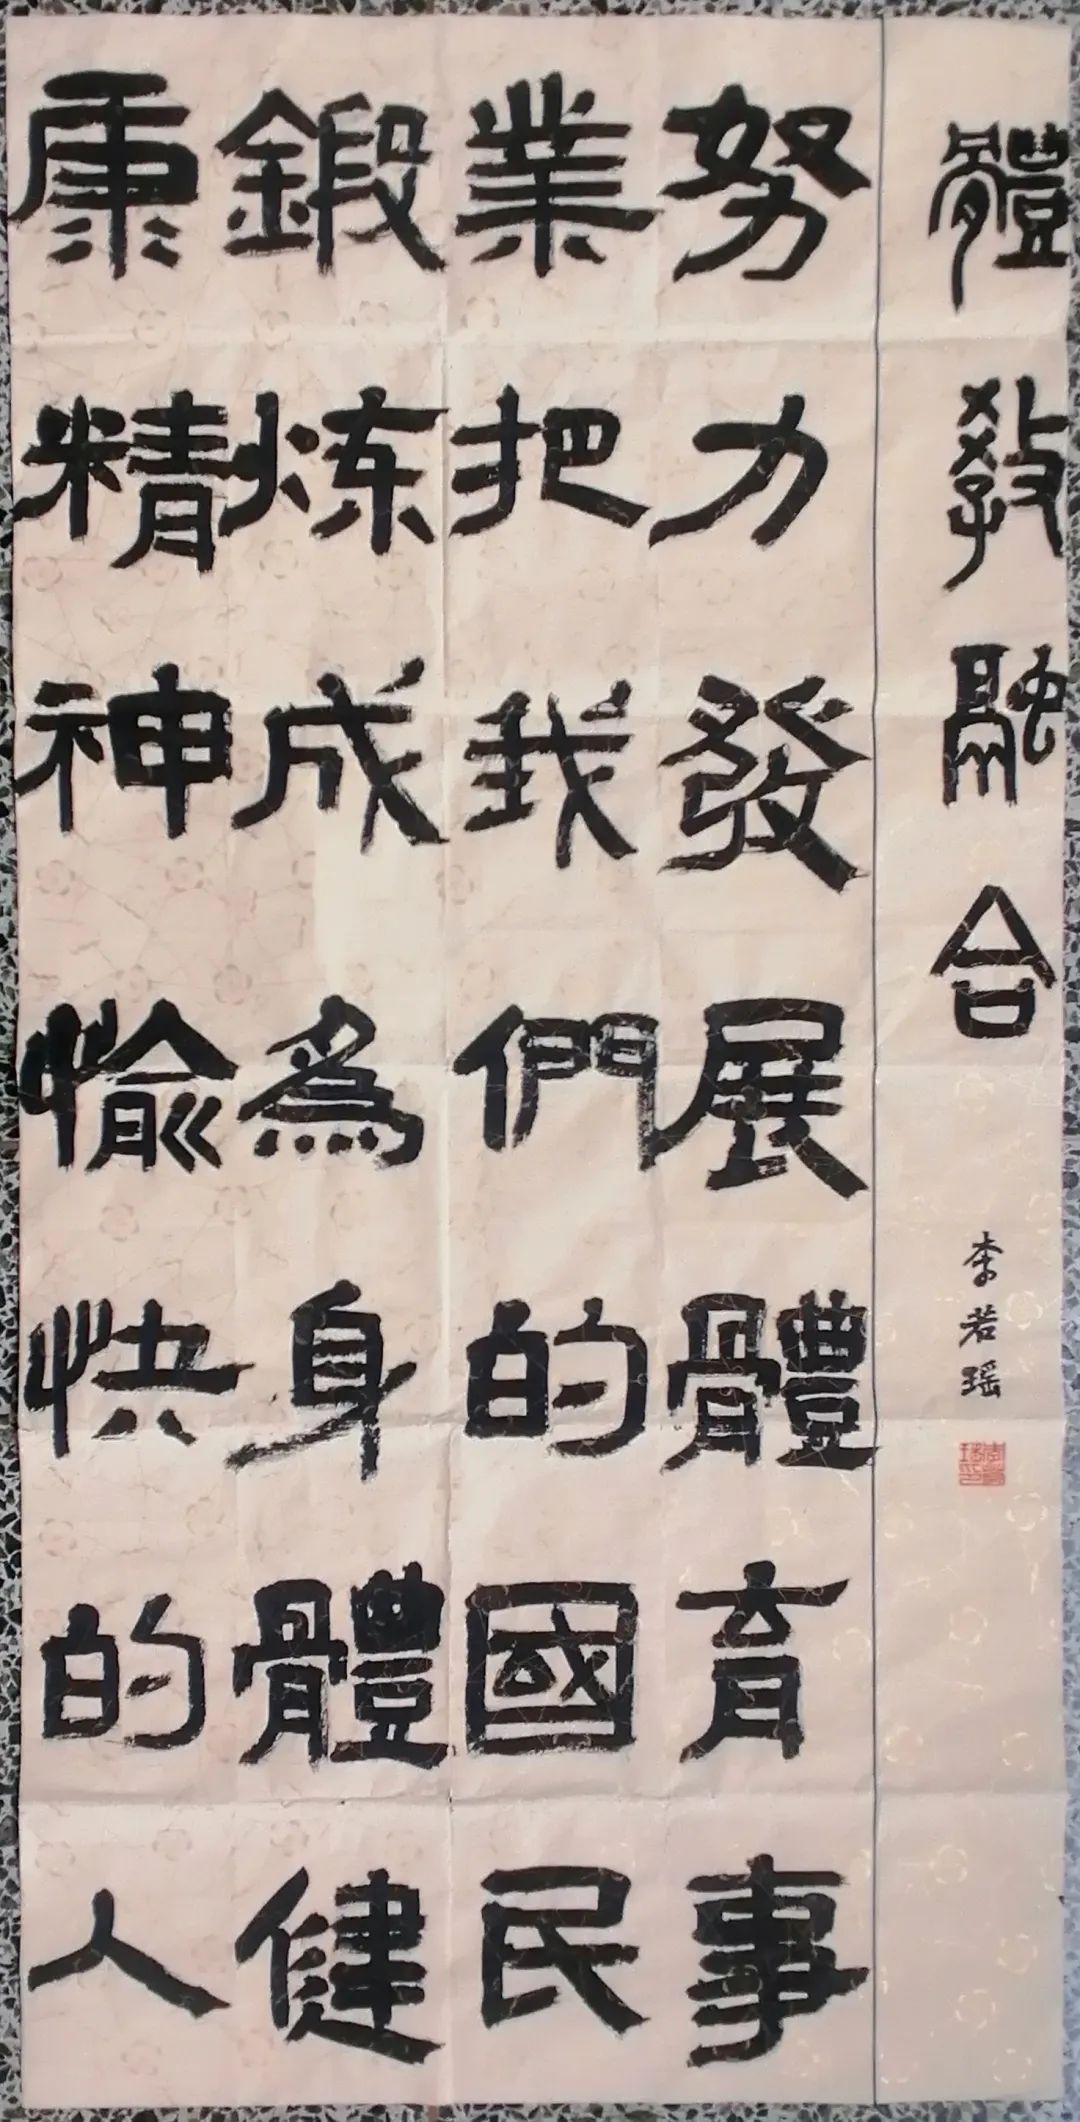 體教融合
李若瑶
努力發展體育事
業把我們的國民
鍛炼成為身體健
康精神愉快的人